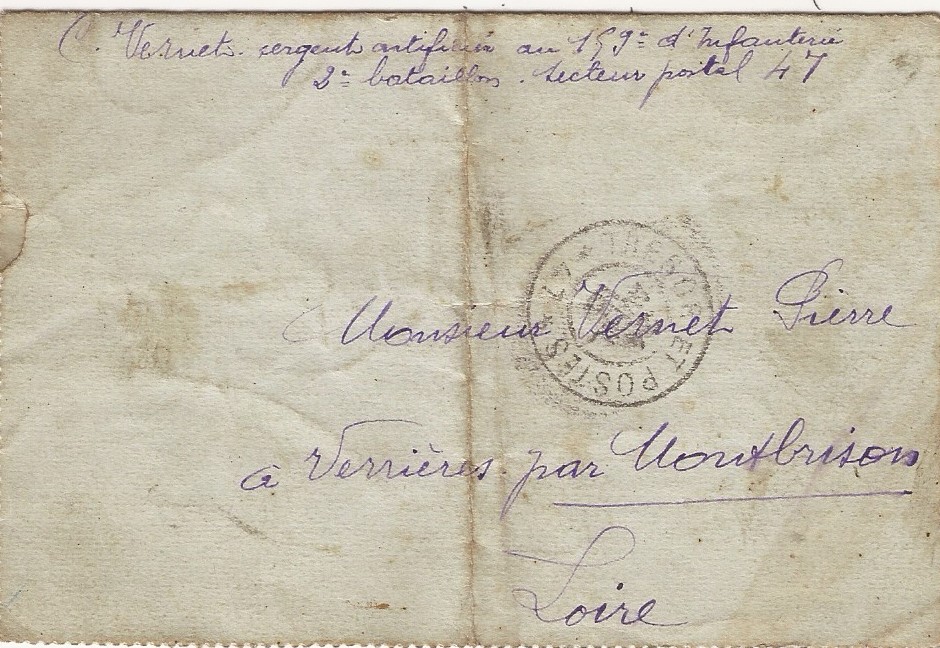 C. Vernet. sergent artificier au 159e d'Infanterie
2e bataillon. Secteur postal 47
TRESOR ET POSTES * 47 *
Monsieur Vernet Pierre
à Verrières par Montbrison
Loire